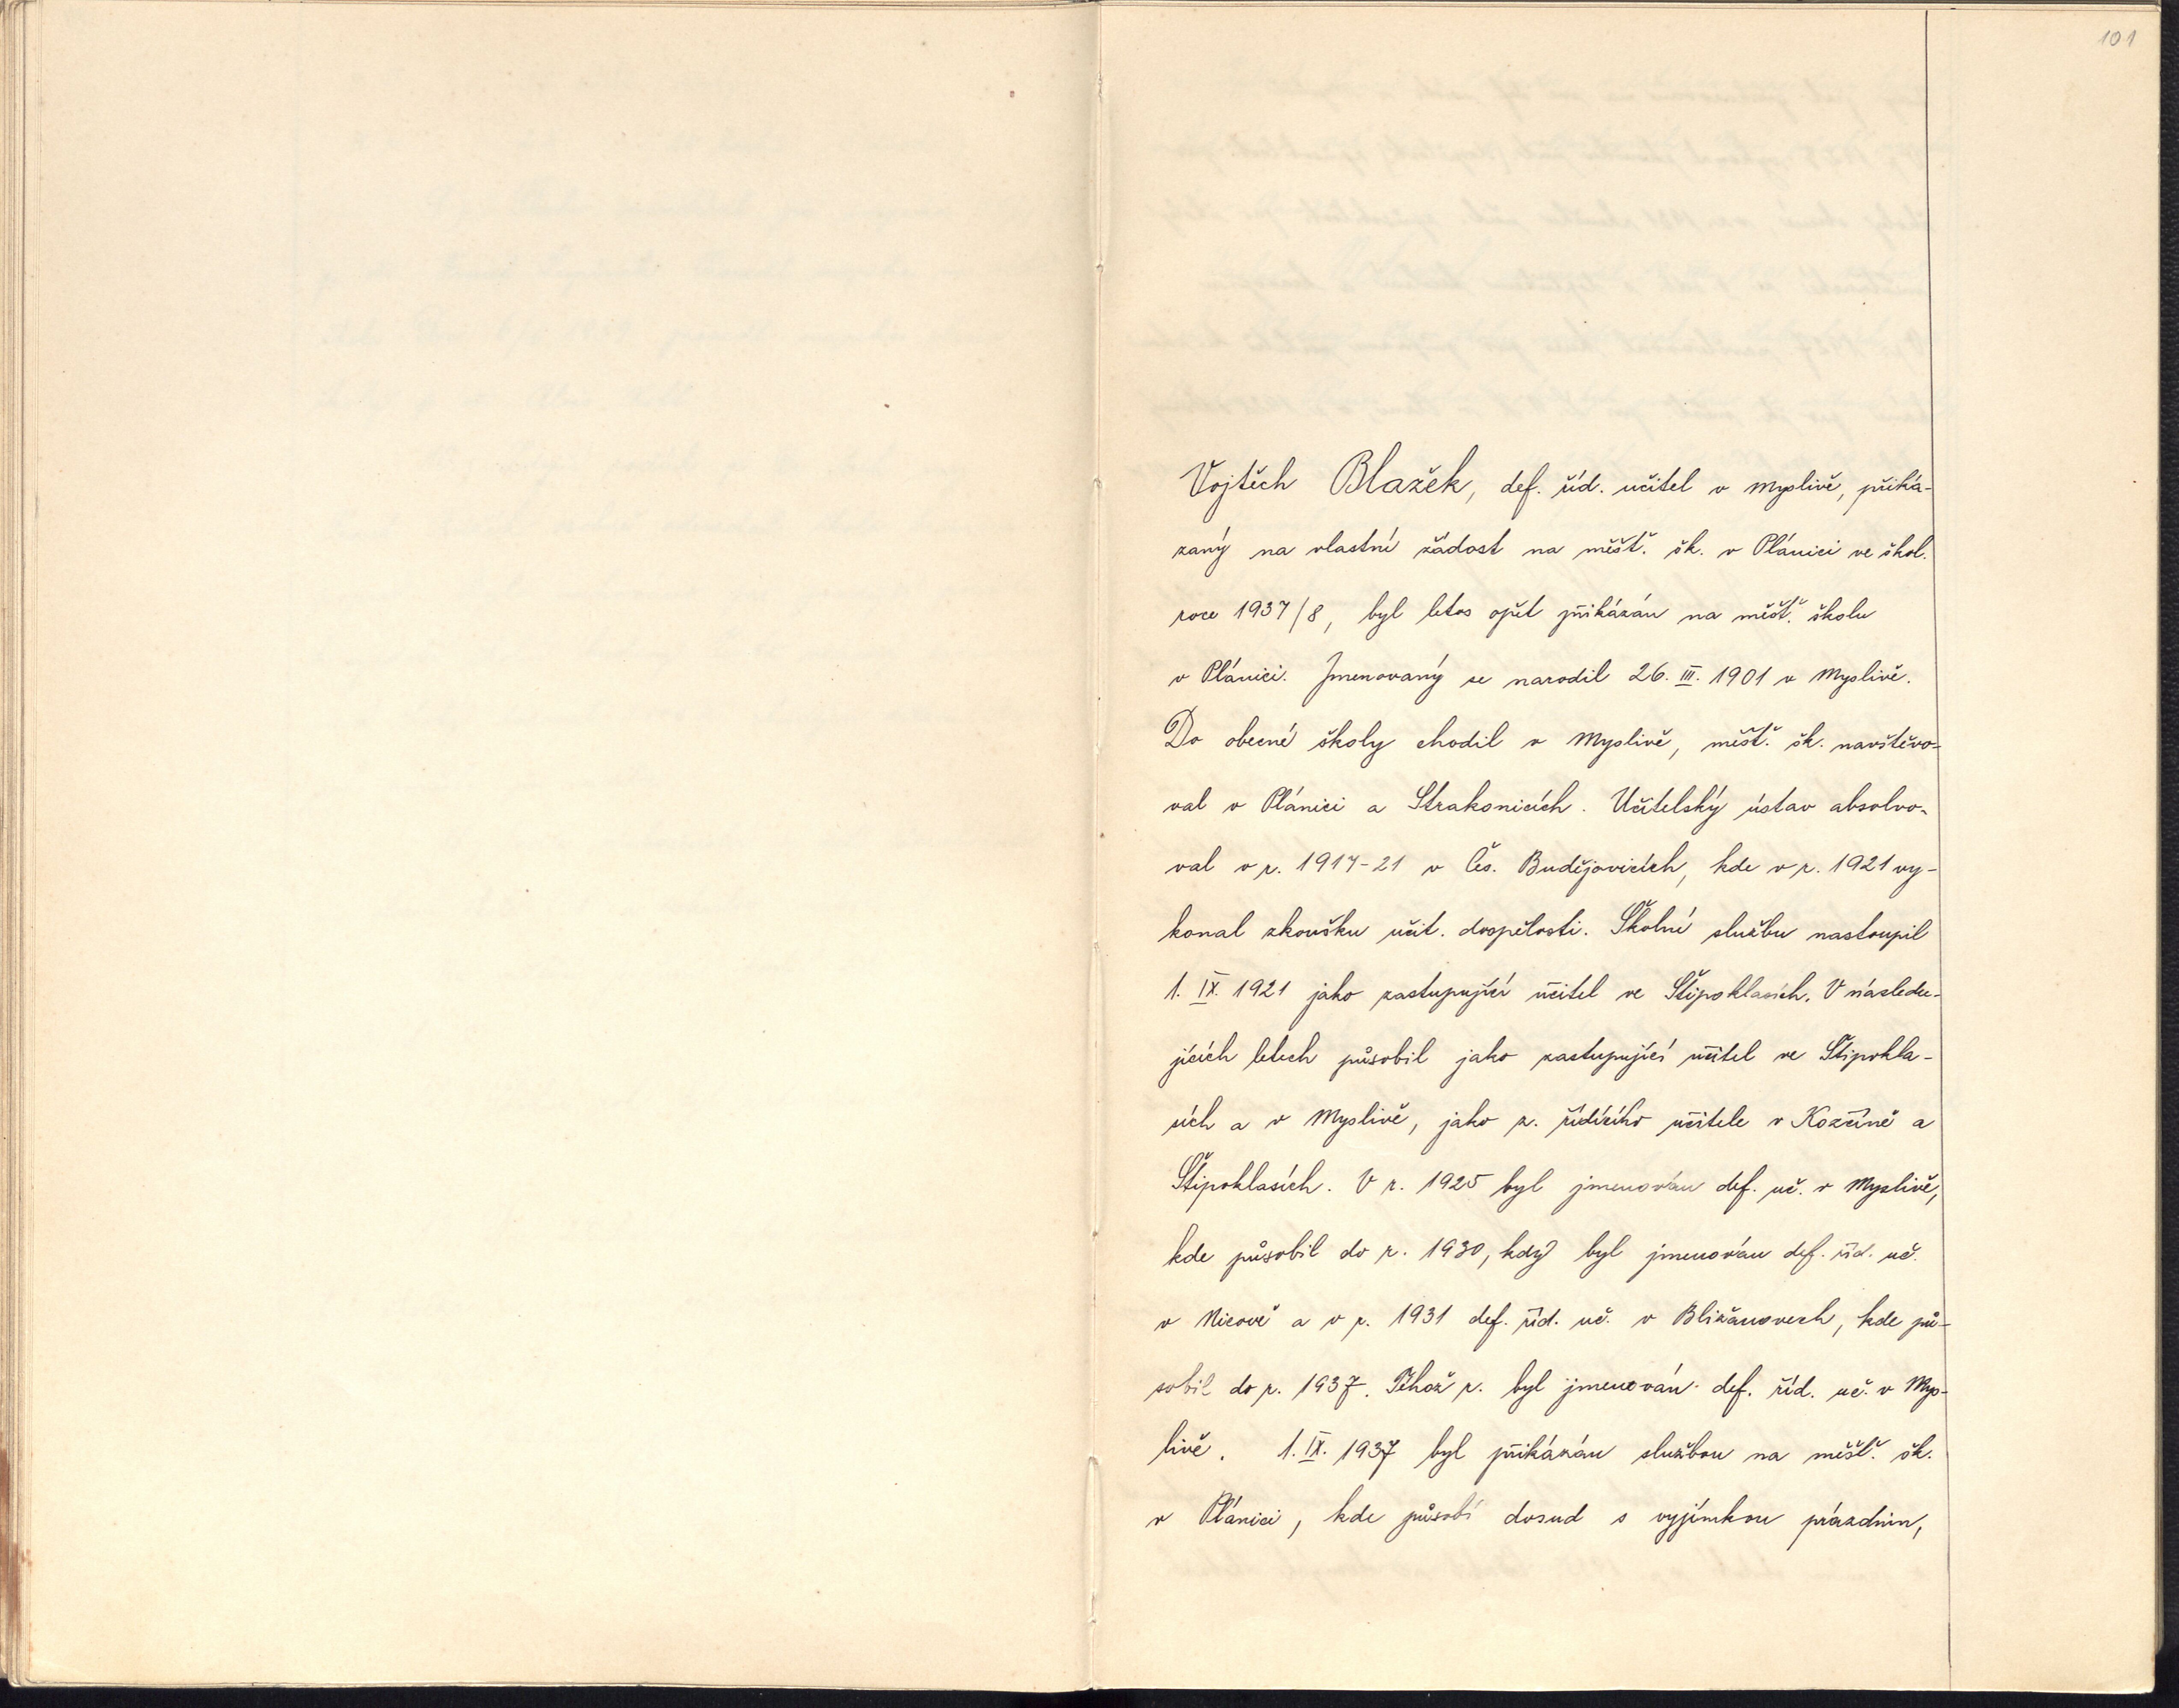 101
Vojtěch Blažek, def. říd. učitel v Myslivě, přiká-
zaný na vlastní žádost na měšť. šk. v Plánici ve škol.
roce 1937/8, byl letos opět přikázán na měšť. školu
v Plánici. Jmenovaný se narodil 26. III. 1901 v Myslivě.
Do obecné školy chodil v Myslivě, měšť. šk. navštěvo-
val v Plánici a Strakonicích. Učitelský ústav absolvo-
val v r. 1917-21 v Čes. Budějovicích, kde v r. 1921 vy-
konal zkoušku učit. dospělosti. Školní službu nastoupil
1. IX. 1921 jako zastupující učitel ve Štipoklasích. V následu-
jících letech působil jako zastupující učitel ve Štipokla-
sích a v Myslivě, jako z. řídícího učitele v Kozčíně a
Štipoklasích. V r. 1925 byl jmenován def. uč. v Myslivě,
kde působil do r. 1930, kdy byl jmenován def. říd. uč.
v Nicově a v r. 1931 def. říd. uč. v Bližanovech, kde pů-
sobil do r. 1937. Téhož r. byl jmenován def. říd. uč. v Mys-
livě. 1. IX. 1937 byl přikázán službou na měšť. šk.
v Plánici, kde působí dosud s vyjímkou prázdnin,